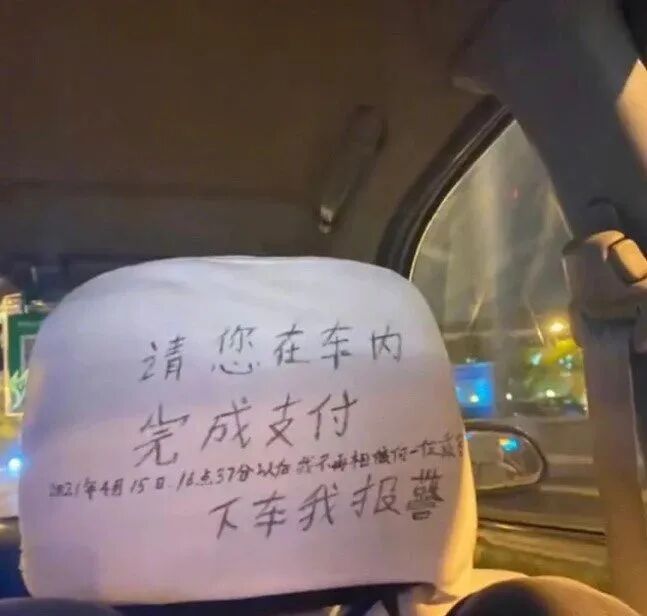 请您在车内
完成支付
2021年4月15日.16点37分以后我不再相信任何一位乘客
下车我报警